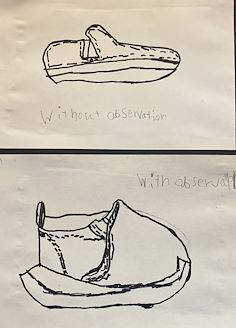 Without observation
With observat